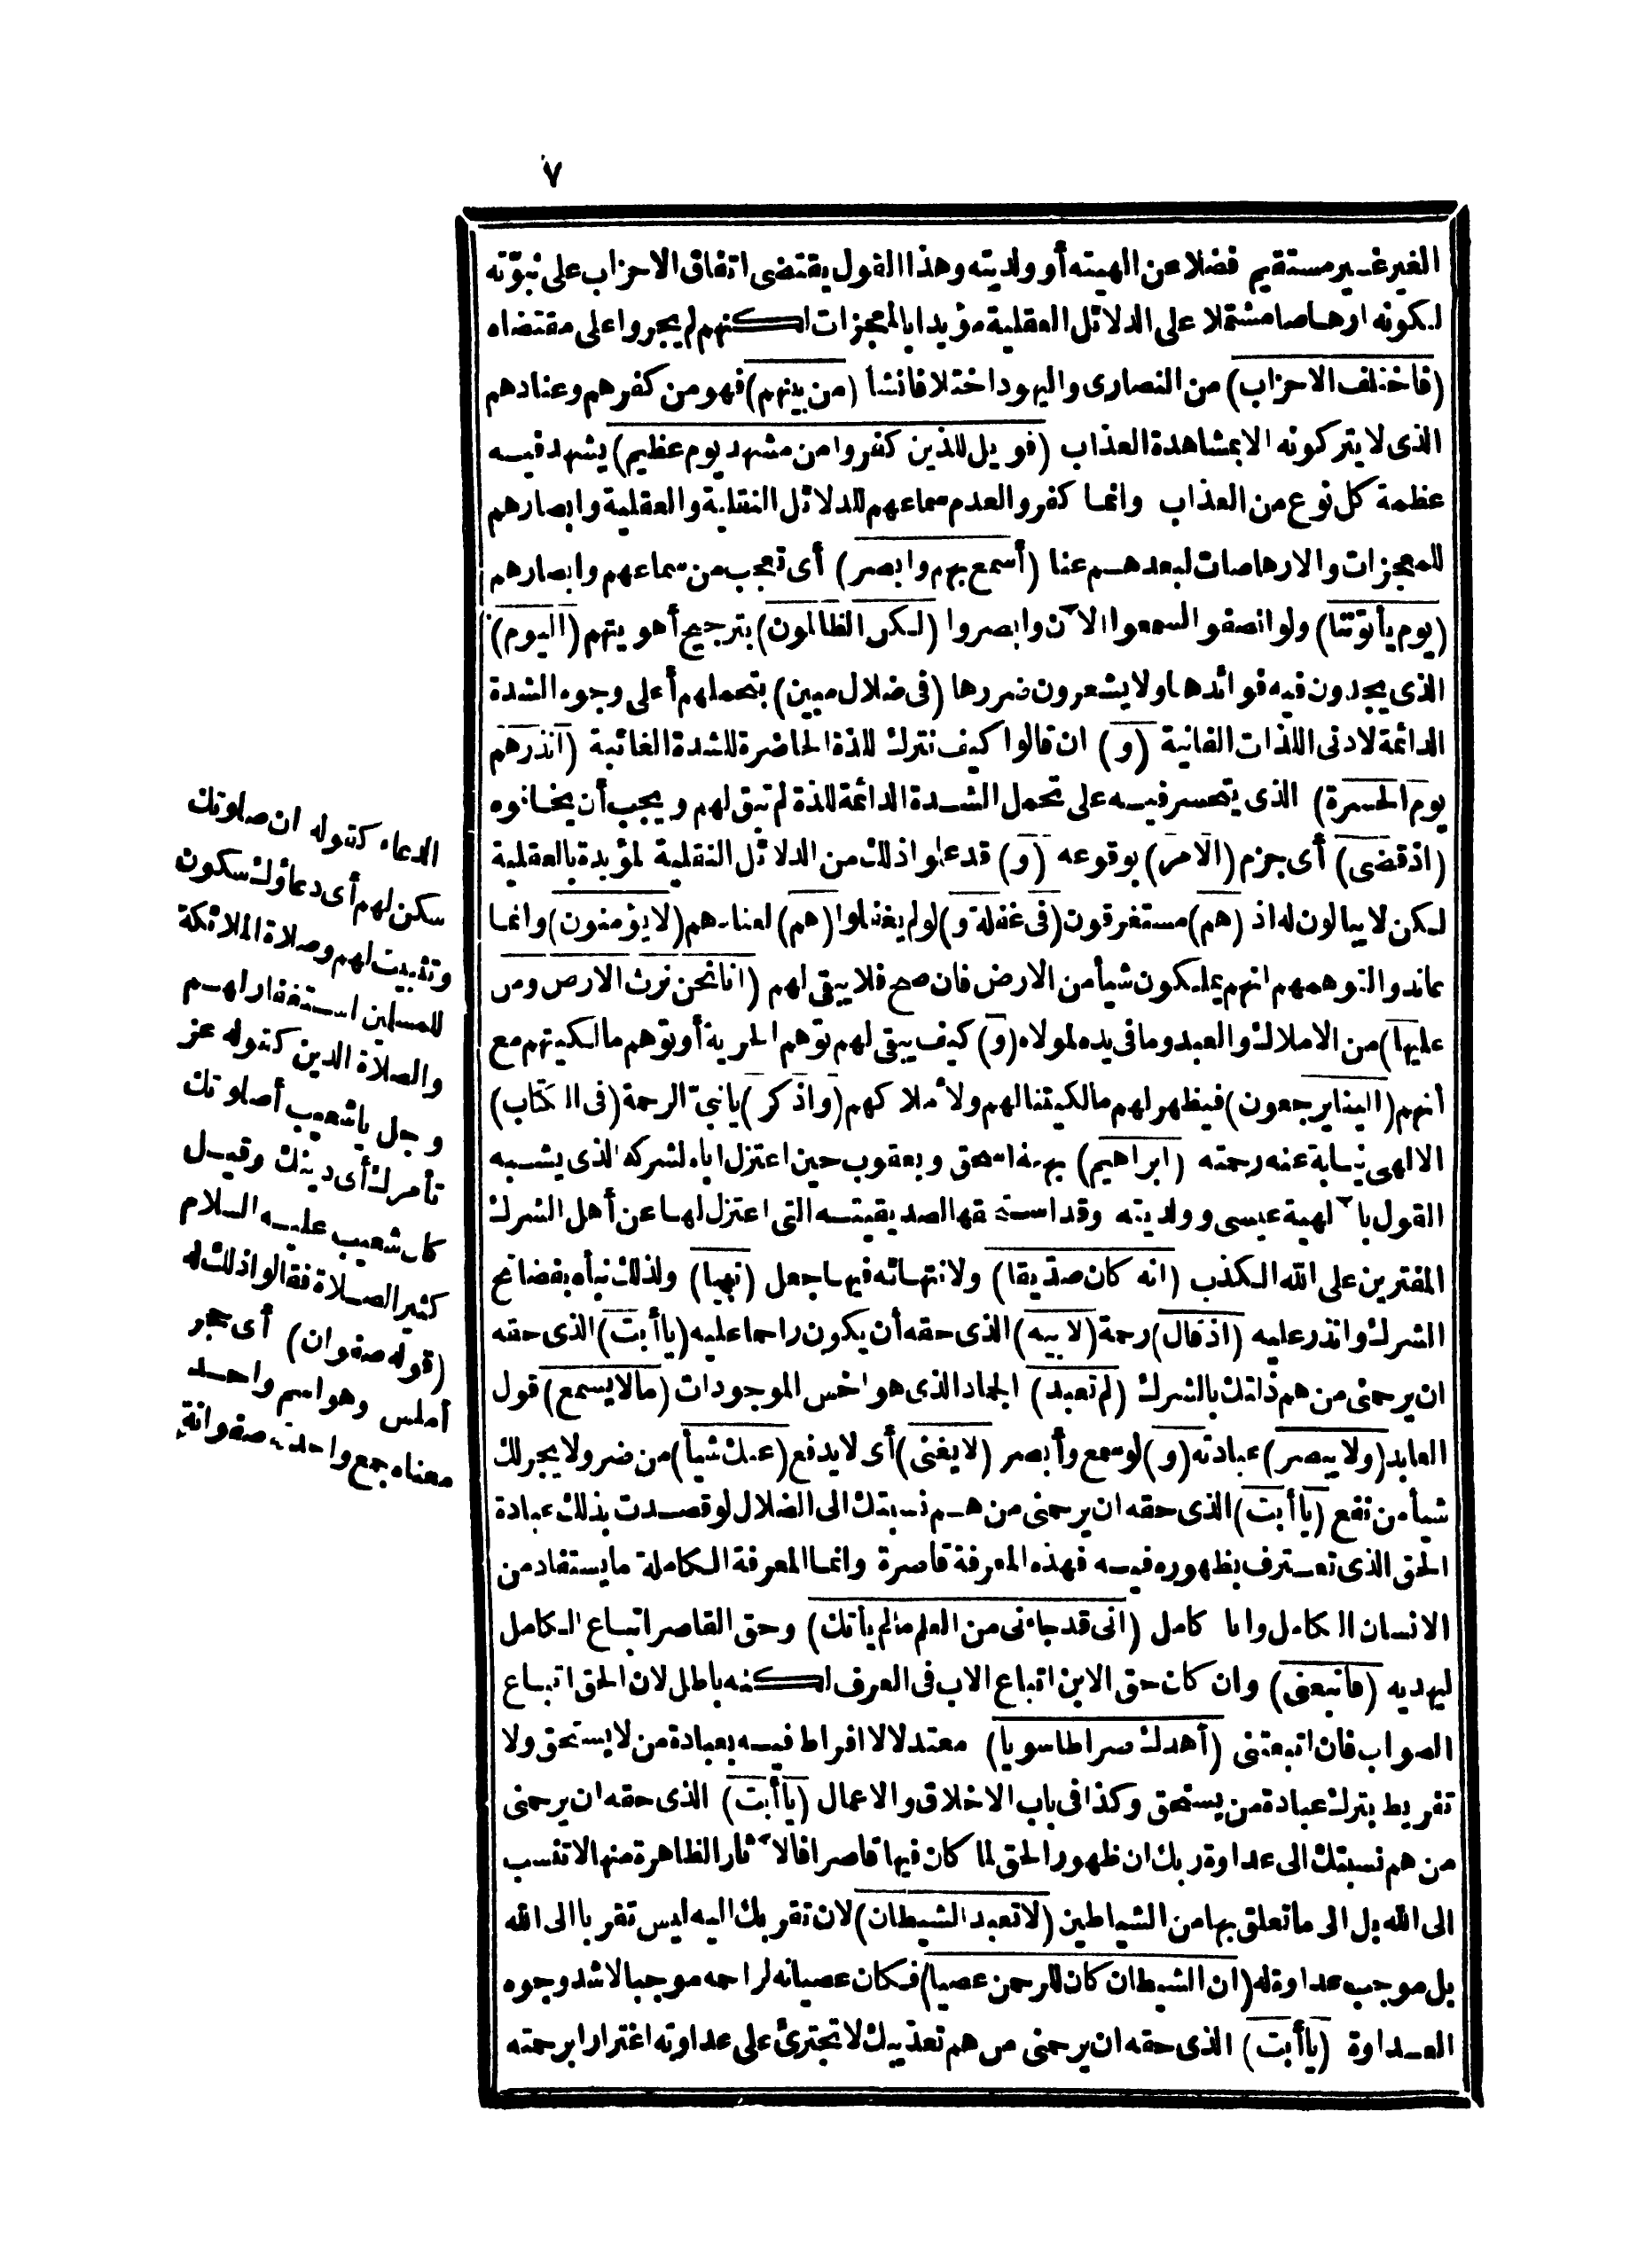 ٧
الغير غير مستقيم فضلا عن الهيته أو ولديته وهذا القول يقتضى اتفاق الاحزاب على نبوّته
لكونه ارهاصا مشتملا على الدلائل العقلية مؤيدا بالمعجزات لكنهم لم يجروا على مقتضاه
(فاختلف الاحزاب) من النصارى واليهود اختلافا نشأ (من بينهم) فهو من كفرهم وعنادهم
الذى لا يتركونه الا بمشاهدة العذاب (فويل للذين كفروا من مشهد يوم عظيم) يشهد فيه
عظمة كل نوع من العذاب وانما كفروا لعدم سماعهم للدلائل النقلية والعقلية وابصارهم
للمعجزات والارهاصات لبعدهم عنا (أسمع بهم وابصر) أى تعجب من سماعهم وابصارهم
(يوم يأتوننا) ولو انصفوا لسمعوا الآن وابصروا (لكن الظالمون) بترجيح أهويتهم (اليوم)
الذى يجدون فيه فوائدها ولا يشعرون ضررها (فى ضلال مبين) بتحملهم أعلى وجوه الشدة
الدائمة لادنى اللذات الفانية (و) ان قالوا كيف نترك للذة الحاضرة للشدة الغائبة (أنذرهم
يوم الحسرة) الذى يتحسر فيه على تحمل الشدة الدائمة للذة لم تبق لهم ويجب أن يخافوه
(اذ قضى) أى جزم (الامر) بوقوعه (و) قد علموا ذلك من الدلائل النقلية لمؤيدة بالعقلية
لكن لا يبالون له اذ (هم) مستغرقون (فى غفلة و) لو لم يغفلوا (هم) لعنادهم (لا يؤمنون) وانما
عاندوا لتوهمهم انهم يملكون شيأ من الارض فان صح فلا يبقى لهم (انا نحن نرث الارض ومن
عليها) من الاملاك والعبد وما فى يده لمولاه (و) كيف يبقى لهم توهم الحرية أو توهم مالكيتهم مع
أنهم (الينا يرجعون) فيظهر لهم مالكيتنا لهم ولأملاكهم (واذكر) يا نبىّ الرحمة (فى الكتاب)
الالهى نيابة عنه رحمته (ابراهيم) بهبة اسحق ويعقوب حين اعتزل اباه لشركه الذى يشبه
القول بآلهية عيسى وولديته وقد استحقها لصديقيته التى اعتزل لها عن أهل الشرك
المفترين على الله الكذب (انه كان صدّيقا) ولانتهائه فيها جعل (نبيا) ولذلك نبأه بفضائح
الشرك وانذر عليه (اذ قال) رحمة (لابيه) الذى حقه أن يكون راحما عليه (يا أبت) الذى حقه
ان يرحمنى من هم ذلتك بالشرك (لم تعبد) الجماد الذى هو اخس الموجودات (ما لا يسمع) قول
العابد (ولا يبصر) عبادته (و) لو سمع وأبصر (لا يغنى) أى لا يدفع (عنك شيأ) من ضر ولا يجر لك
شيأ من نفع (يا أبت) الذى حقه ان يرحمنى من هم نسبتك الى الضلال لو قصدت بذلك عبادة
الحق الذى تعترف بظهوره فيه فهذه المعرفة قاصرة وانما المعرفة الكاملة ما يستفاد من
الانسان الكامل وانا كامل (انى قد جاءنى من العلم ما لم يأتك) وحق القاصر اتباع الكامل
ليهديه (فاتبعنى) وان كان حق الابن اتباع الاب فى العرف لكنه باطل لان الحق اتباع
الصواب فان اتبعتنى (أهدك صراطا سويا) معتدلا لا افراط فيه بعبادة من لا يستحق ولا
تفريط بترك عبادة من يستحق وكذا فى باب الاخلاق والاعمال (يا أبت) الذى حقه ان يرحمنى
من هم نسبتك الى عداوة ربك ان ظهور الحق لما كان فيها قاصرا فالآثار الظاهرة منها لا تنسب
الى الله بل الى ما تعلق بها من الشياطين (لا تعبد الشيطان) لان تقربك اليه ليس تقربا الى الله
بل موجب عداوة له (ان الشيطان كان للرحمن عصيا) فكان عصيانه لراحمه موجبا لاشد وجوه
العداوة (يا أبت) الذى حقه ان يرحمنى من هم تعذيبك لا تجترئ على عداوته اغترارا برحمته
الدعاء كقوله ان صلوتك
سكن لهم أى دعاؤك سكون
وتثبيت لهم وصلاة الملائكة
للمسلمين استغفار لهم
والصلاة الدين كقوله عز
وجل يا شعيب أصلوتك
تأمرك أى دينك وقيل
كان شعيب عليه السلام
كثير الصلاة فقالوا ذلك له
(قوله صفوان) أى حجر
أملس وهو اسم واحد
معناه جمع واحدته صفوانة